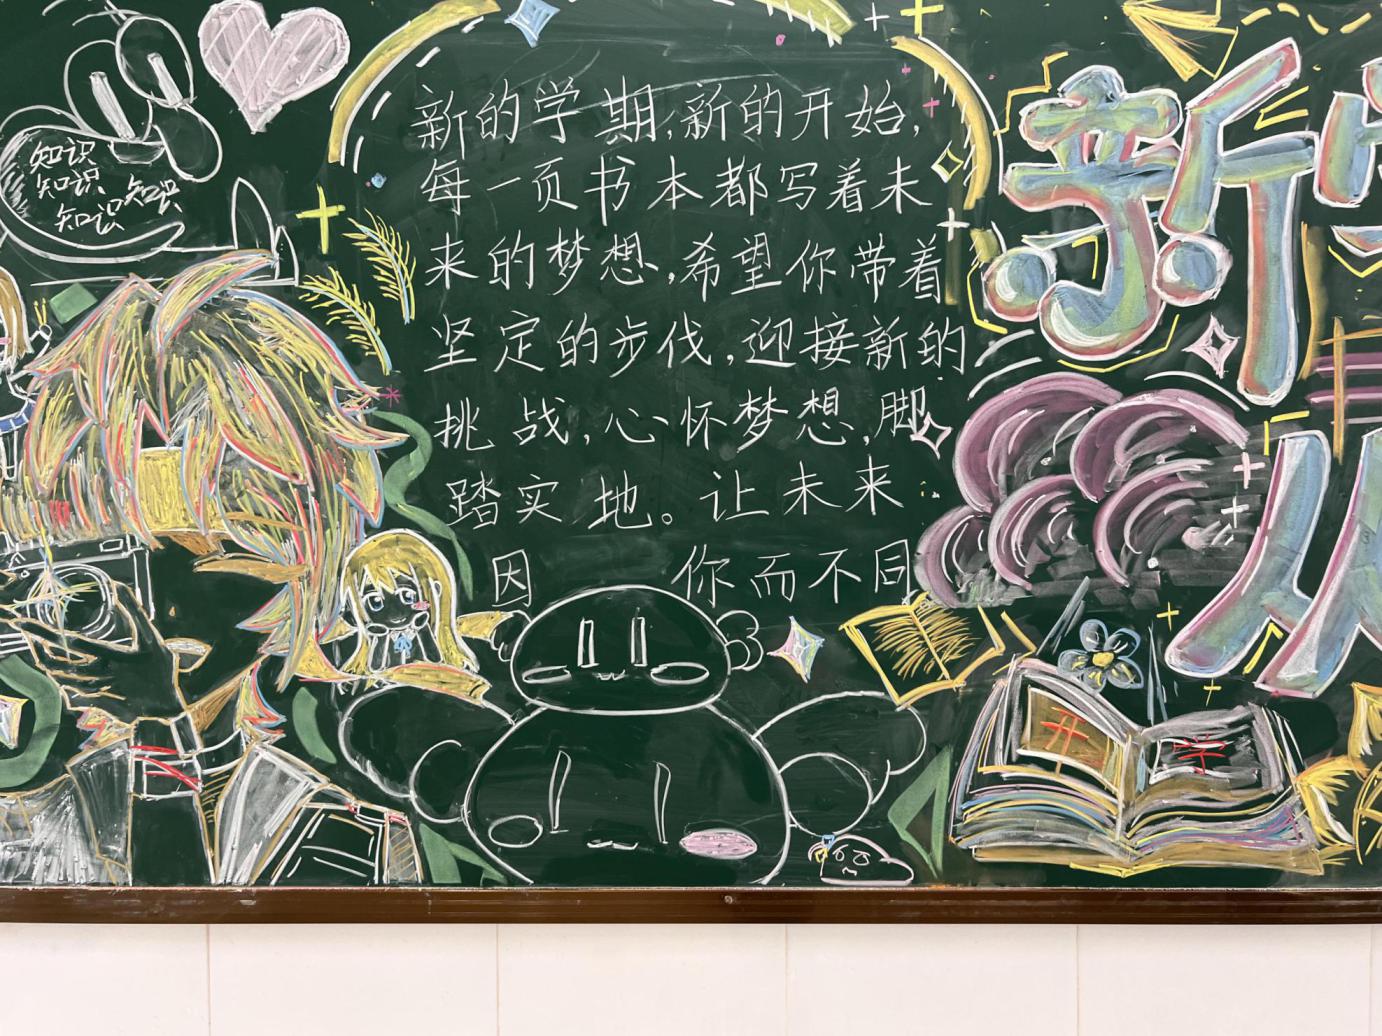 知识
知识 知识
知识
新的学期,新的开始,
每一页书本都写着未
来的梦想,希望你带着
坚定的步伐,迎接新的
挑战,心怀梦想,脚
踏实地。让未来
因 你而不同
新
从
开 学